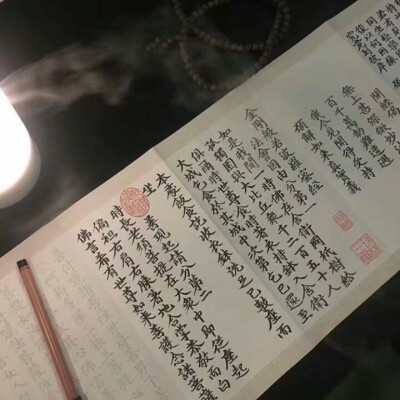 開經偈
無上甚深微妙法
百千萬劫難遭遇
我今見聞得受持
願解如來真實義
金剛般若波羅蜜經
法會因由分第一
如是我聞一時佛在舍衛國祇樹給
孤獨園與大比丘眾千二百五十人
俱爾時世尊食時著衣持缽入舍衛
大城乞食於其城中次第乞已還至
本處飯食訖收衣缽洗足已敷座而
坐
善現啟請分第二
時長老須菩提在大眾中即從座起
偏袒右肩右膝著地合掌恭敬而白
佛言希有世尊如來善護念諸菩薩